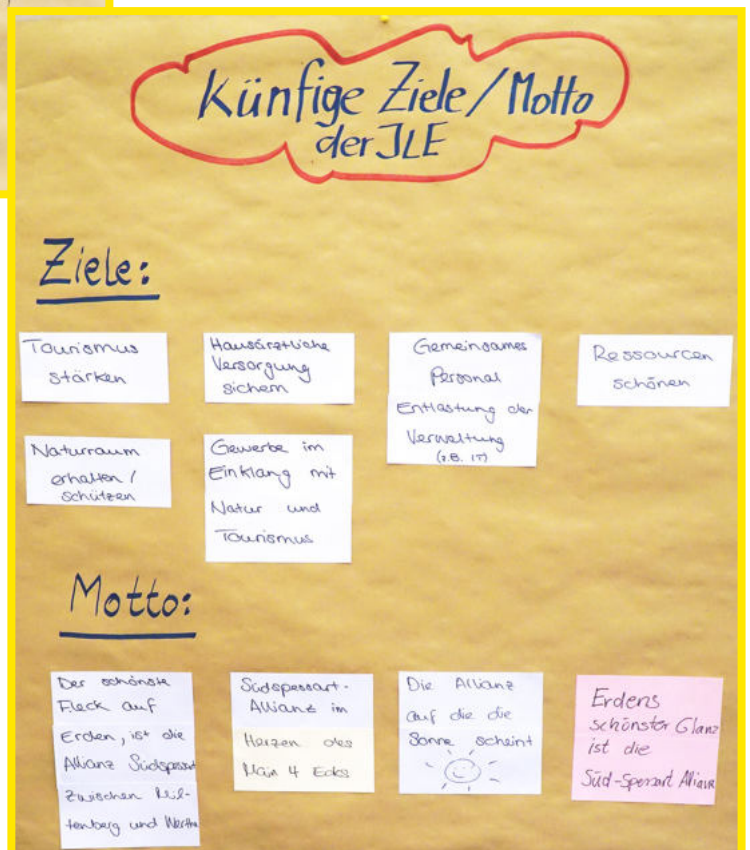 Künfige Ziele/Motto
der ILE
Ziele:
Tourismus
stärken
Hausärztliche
Versorgung
sichern
Gemeinsames
Personal
Entlastung der
Verwaltung
(z.B. IT)
Ressourcen
schönen
Naturraum
erhalten /
schützen
Gewerbe im
Einklang mit
Natur und
Tourismus
Motto:
Der schönste
Fleck auf
Erden, ist die
Allianz Südspessart
zwischen Mil-
tenberg und
Südspessart-
Allianz im
Herzen des
Main 4 Ecks
Die Allianz
auf die die
Sonne scheint
Erdens
schönster Glanz
ist die
Süd-Spessart Allianz